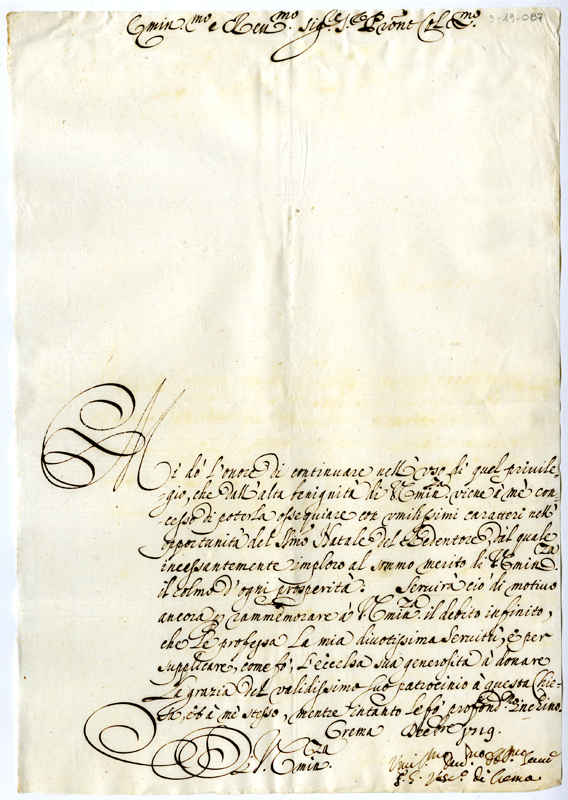 3-19-007
Emin.mo e Rev.mo Sig.re Sig.re Pron Col.mo
Mi dò l'onore di continuare nell'uso di quel privile-
-gio, che dall'alta benignità di V. Em.za viene à mè con-
-cesso di poterla ossequiare con umilissimi caratteri nell'
opportunità del S.mo Natale del Redentore, dal quale
incessantemente imploro al sommo merito di V. Emin.za
il colmo d'ogni prosperità. Servirà ciò di motivo
ancora p rammemorare à V. Emin.za il debito infinito,
che Le professa la mia divotissima servitù, e per
supplicare, come fò, l'eccelsa sua generosità à donare
la grazia del validissimo suo patrocinio à questa Chie-
sa, et à mè stesso, mentre frà tanto le fò profond.mo inchino.
Crema Xbre 1719.
Di V. Emin.za
Um.mo Dev.mo Obl.mo Serv.
F. G. Vesc.o di Crema